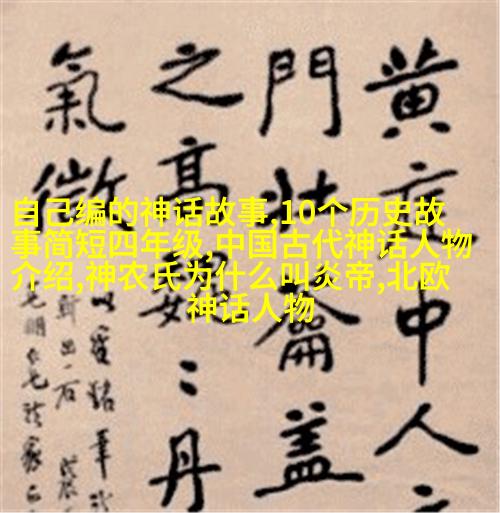 自己编的神话故事,10个历史故
事简短四年级,中国古代神话人物
介绍,神农氏为什么叫炎帝,北欧
神话人物
黄庭中人
門壯籥蓋
之高巍〻丹
氣微